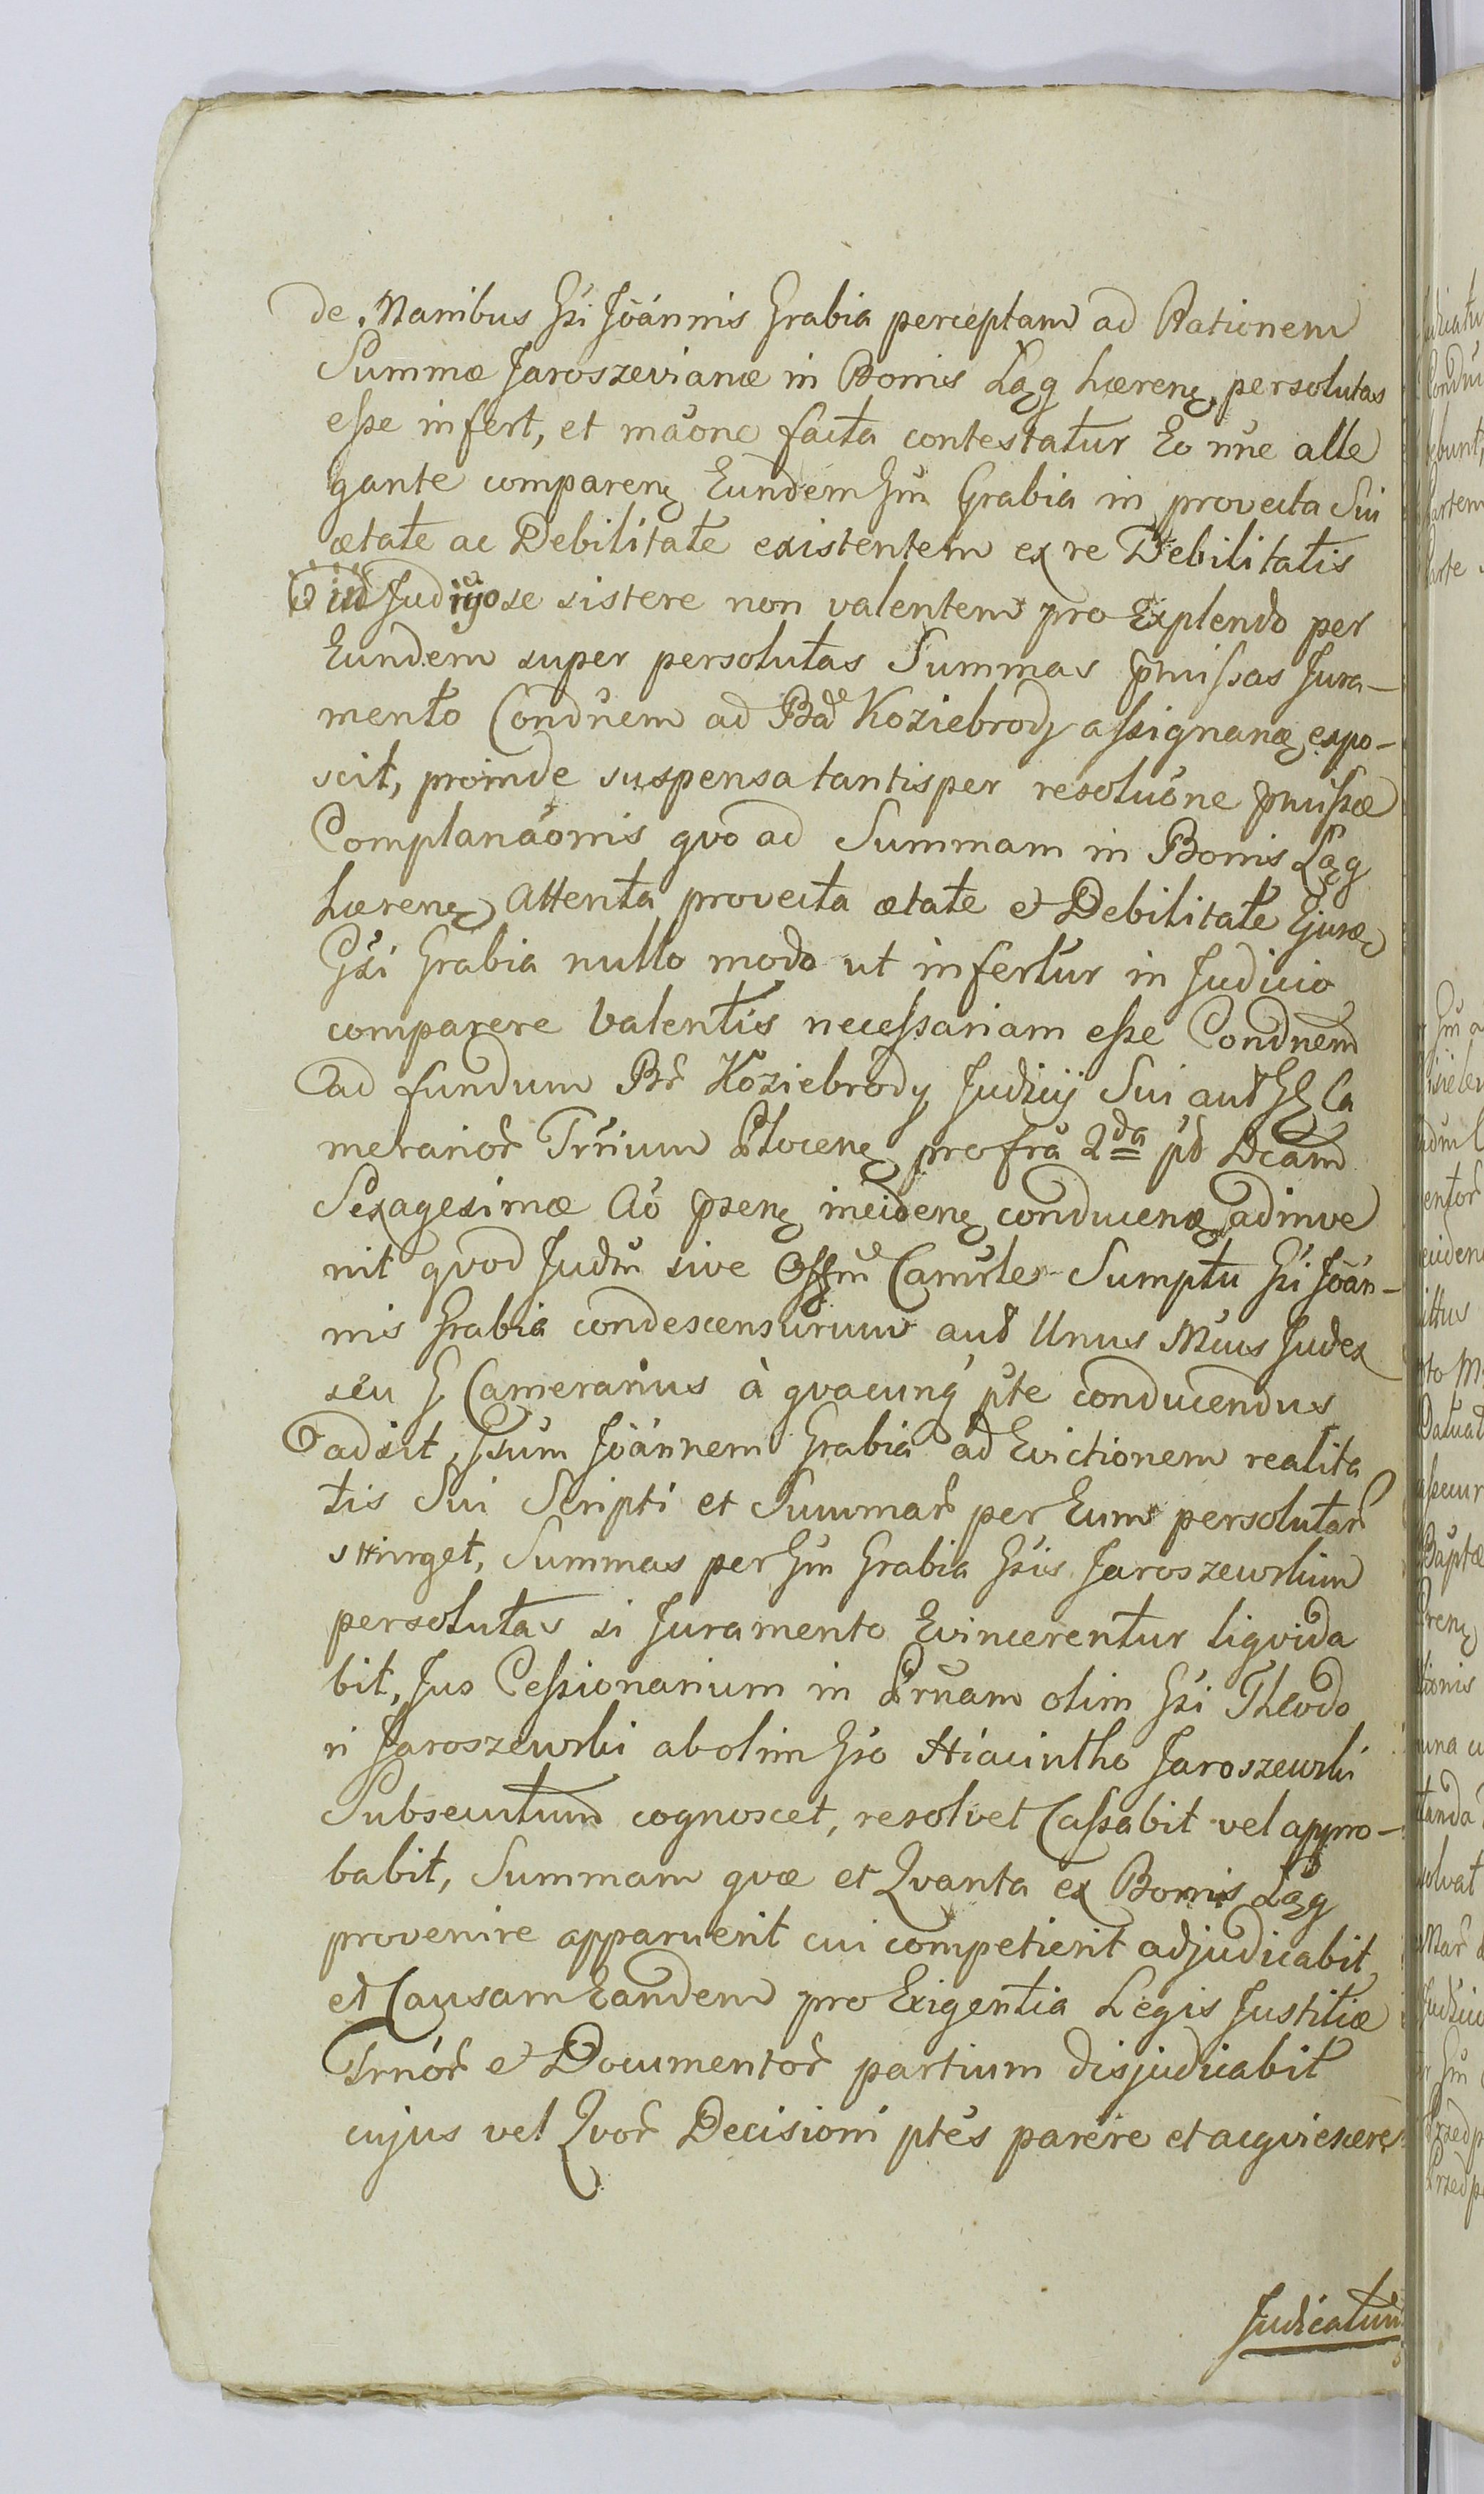 de Manibus Gsi Joánnis Grabia perceptam ad Rationem
Summæ Jaroszevianæ in Bonis Ląg hæren. persolutas
esse infert, et mãone facta contestatur Eo nũc alle
gante comparen. Eundem Gm Grabia in provecta Sui
ætate ac Debilitate existentem ex re Debilitatis
in Judicijo se sistere non valentem pro Explendo per
Eundem super persolutas Summas pmissas Jura-
mento Condnem ad Bd Koziebrody assignan. expo-
scit, proinde suspensa tantisper resolũone pmissæ
Complanãonis qvo ad Summam in Bonis Ląg
hæren. Attenta provecta ætate et Debilitate Ejusd.
Gsi Grabia nullo modo ut infertur in Judicio
comparere valentis necessariam esse Condnem
ad fundum Br Koziebrody Judicij Sui aut G. Ca
merarior Trrium Plocen. pro fra 2da pt Dcam
Sexagesimæ Ao psen. inciden. conducen. adinve
nit qvod Judm sive Offm Camrle Sumptu Gsi Joán-
nis Grabia condescensurum aut Unus Mcus Judex
seu G Camerarius à qvacunq pte conducendus
adsit, Gsum Joánnem Grabia ad Evictionem realita
tis Sui Scripti et Summar per Eum persolutar
stringet, Summas per Gm Grabia Gsis Jaroszewskim
persolutas si Juramento Evincerentur liqvida
bit, Jus Cessionarium in Prnam olim Gsi Theodo
ri Jaroszewski ab olim Gso Hiacintho Jaroszewski
Subsecutum cognoscet, resolvet Cassabit vel appro-
babit, Summam qvæ et Qvanta ex Bonis Ląg
provenire apparuerit cui competierit adjudicabit
et Causam Eandem pro Exigentia Legis Justitiæ
Trnór et Documentor partium disjudicabit
cujus vel Qvor Decisioni ptes parére et acqviescere
Judicatum